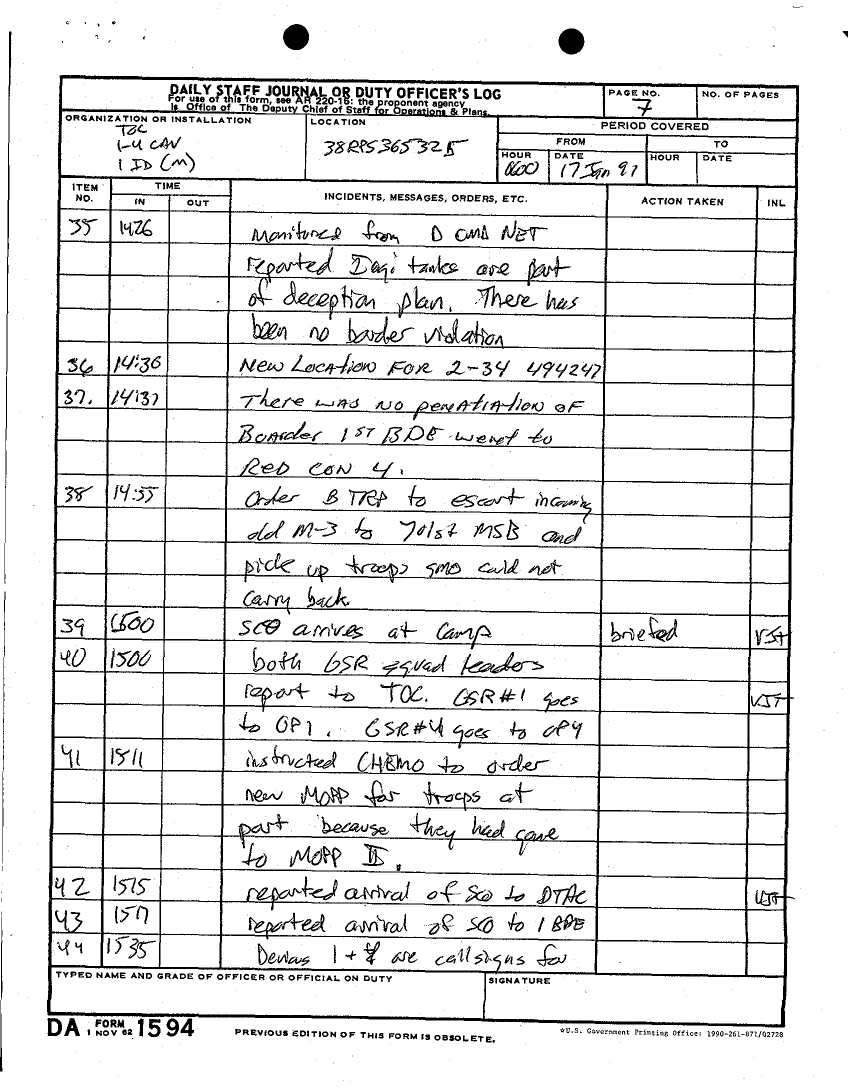 DAILY STAFF JOURNAL OR DUTY OFFICER'S LOG
For use of this form, see AR 220-15: the proponent agency
is Office of The Deputy Chief of Staff for Operations & Plans.
PAGE NO.
7
NO. OF PAGES
ORGANIZATION OR INSTALLATION
TOC
1-4 CAV
1 ID (M)
LOCATION
38RPS365325
PERIOD COVERED
FROM
TO
HOUR
0600
DATE
17 Jan 91
HOUR
DATE
ITEM NO.
TIME
IN
OUT
INCIDENTS, MESSAGES, ORDERS, ETC.
ACTION TAKEN
INL
35 1426 Monitured from D CMD NET
reported Iraqi tanks are part
of deception plan. There has
been no border violation
36 14:36 New Location FOR 2-34 494247
37. 14:37 There was no penatiation of
Boarder 1ST BDE weret to
RED CON 4.
38 14:55 Order B TRP to escort incoming
old M-3 to 701st MSB and
pick up troops SMO could not
carry back.
39 1500 SCO arrives at Camp briefed VJT
40 1500 both GSR squad leaders
report to TOC. GSR#1 goes VJT
to OP1. GSR#4 goes to OP4
41 1511 instructed CHEMO to order
new MOPP for troops at
port because they had gone
to MOPP II.
42 1515 reported arrival of SCO to DTAC VJT
43 1517 reported arrival of SCO to 1 BDE
44 1535 1 + 4 are callsigns for
TYPED NAME AND GRADE OF OFFICER OR OFFICIAL ON DUTY
SIGNATURE
DA FORM 1 NOV 62 1594
PREVIOUS EDITION OF THIS FORM IS OBSOLETE.
*U.S. Government Printing Office: 1990-261-871/02728